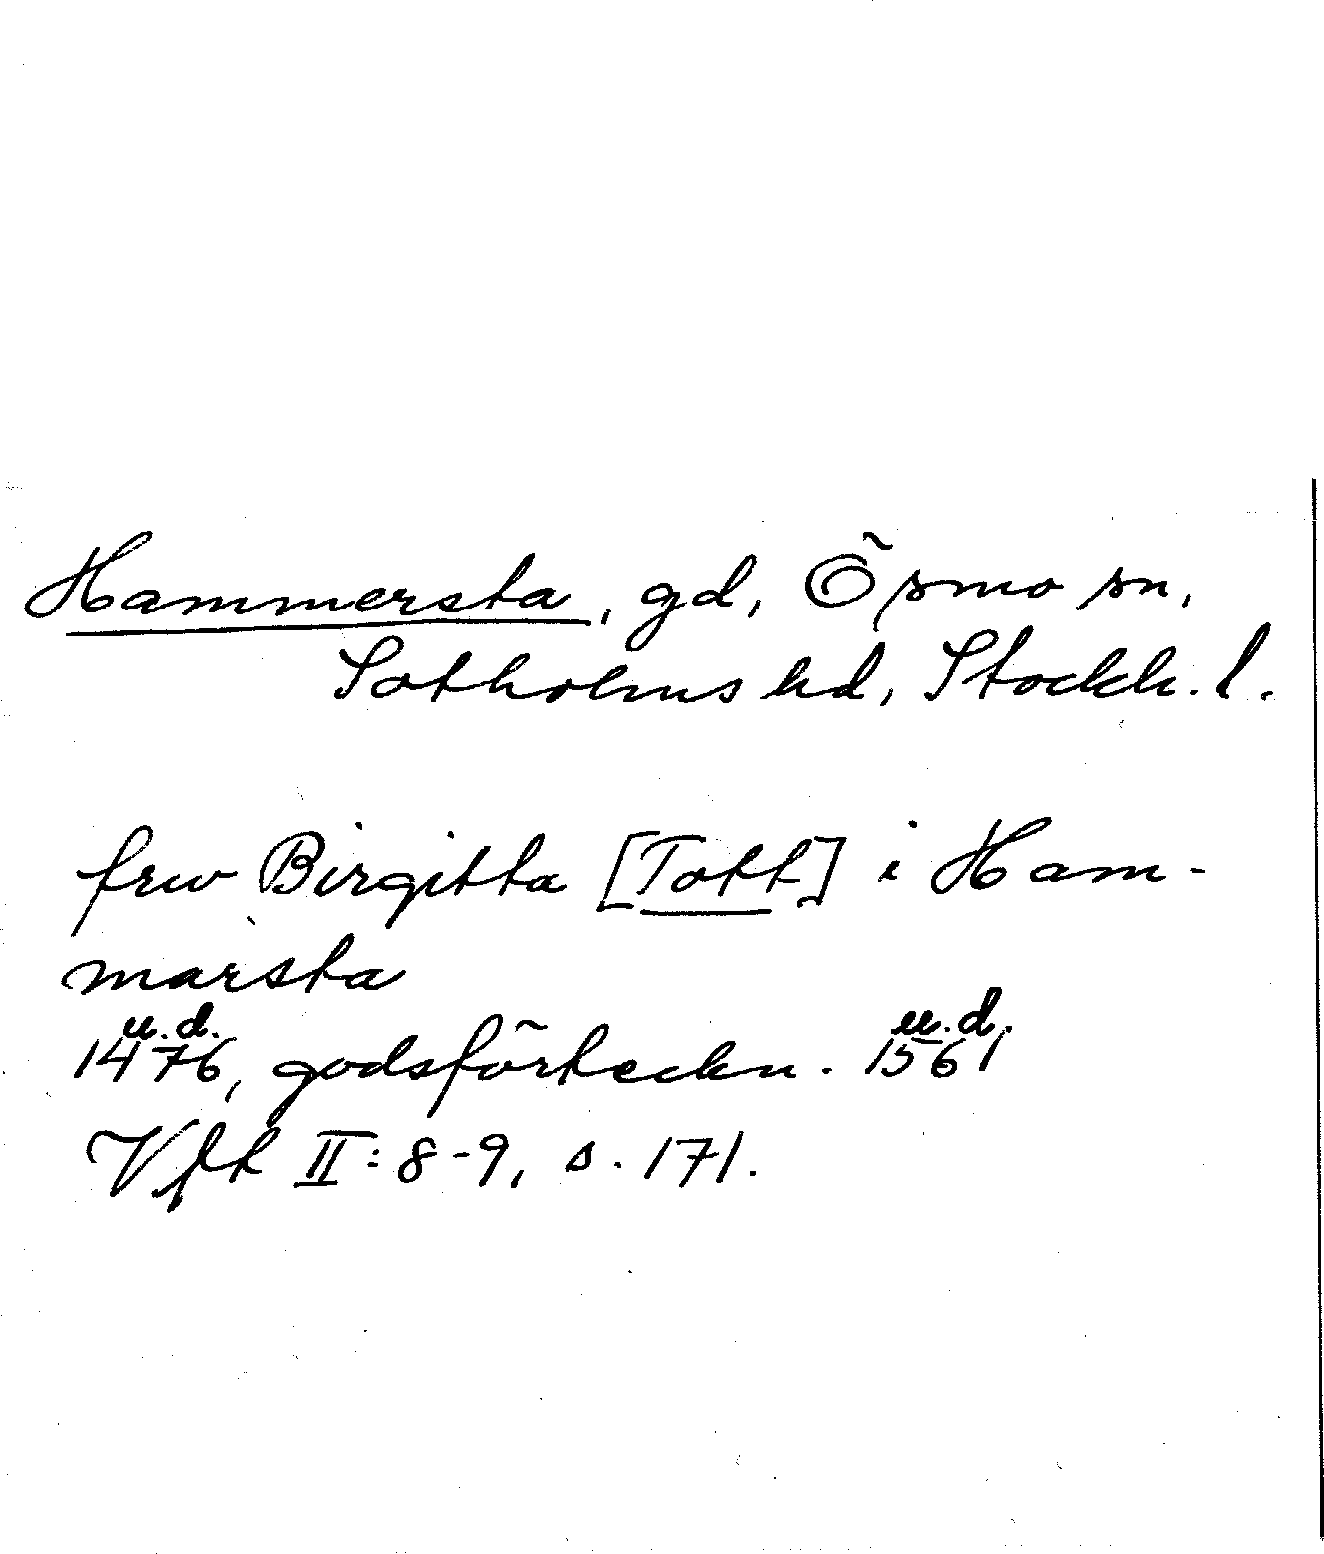 Hammersta, gd, Ösmo sn,
Sotholms hd, Stockh. l.
frw Birgitta [Tott] i Ham-
marsta
u.d. u.d.
1476, godsförteckn. 1561
Vfl II: 8-9, s. 171.